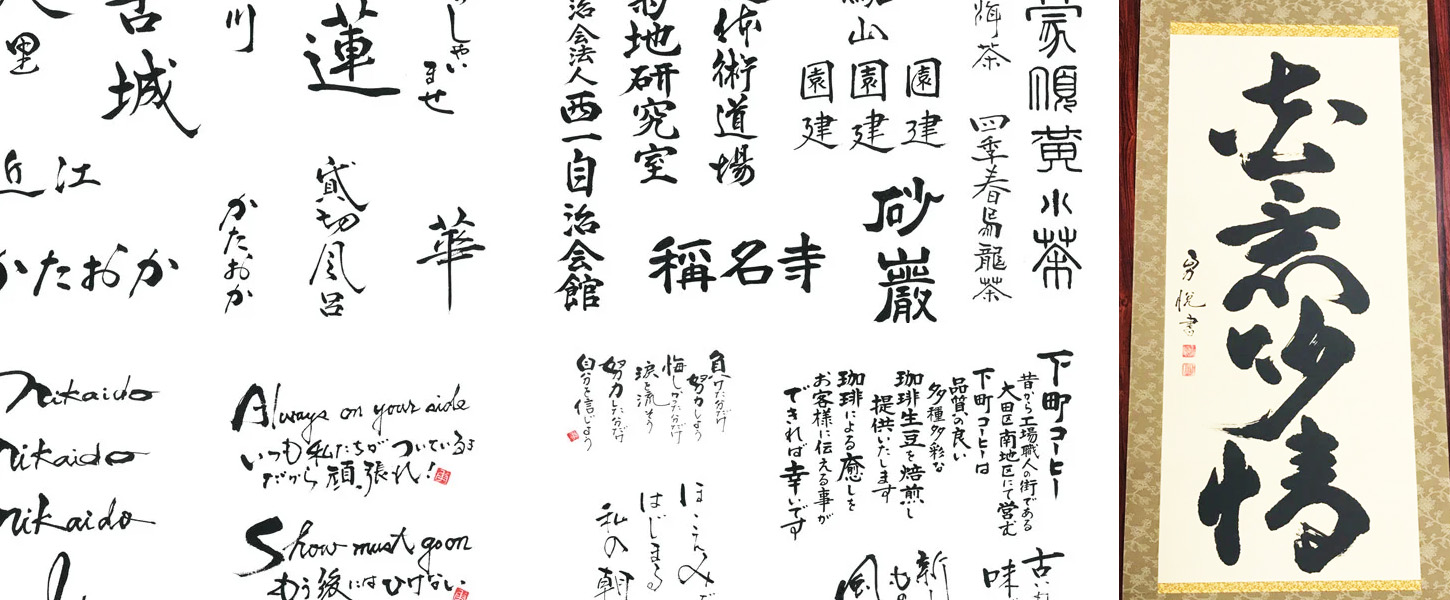 里
古城
川
蓮
しゃい
ませ
近江
かたおか
かたおか
貸切風呂
華
治会法人
西一自治会館
地研究室
体術道場
山
園建
園建
園建
稱名寺
砂巌
茶
四季春烏龍茶
蒙頂黄小茶
Nikaido
Nikaido
Nikaido
Always on your side
いつも私たちがついているよ
だから頑張れ!
Show must go on
もう後にはひけない
負けただけ
努力しよう
悔しかっただけ
涙を流そう
努力した分だけ
自分を信じよう
ほほえみで
はじまる
私の朝
下町コーヒー
昔から工場職人の街である
大田区南地区にて営む
下町コーヒーは
品質の良い
多種多彩な
珈琲生豆を焙煎し
提供いたします
珈琲による癒しを
お客様に伝える事が
できれば幸いです
古い
味
新し
もの
風
意妙情
書